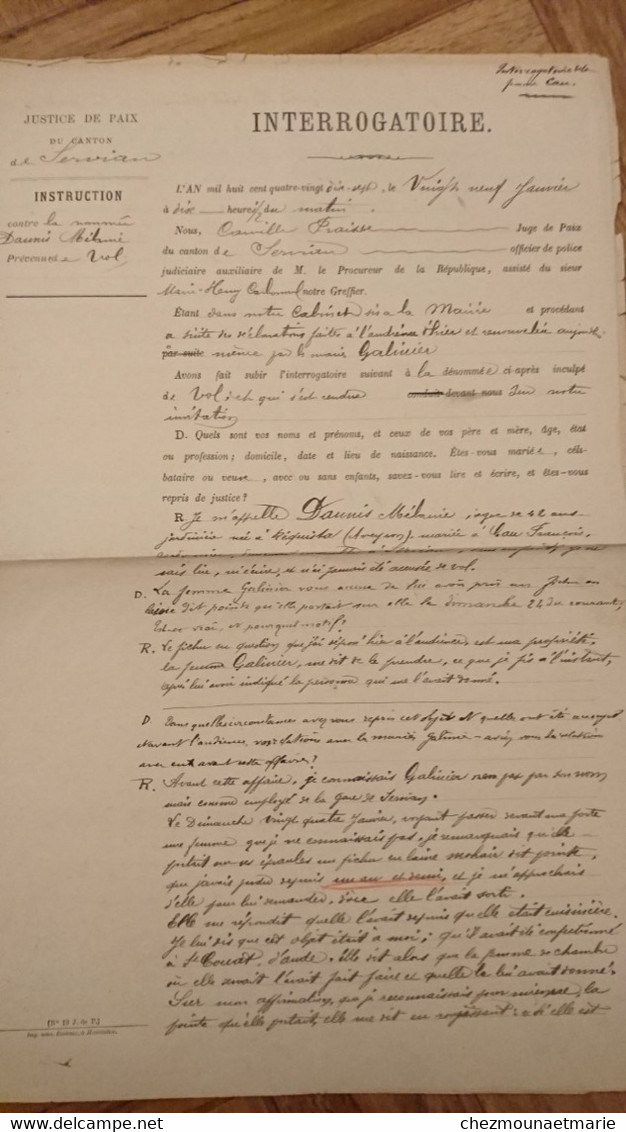 Interrogatoire de
femme Cau.
JUSTICE DE PAIX
DU CANTON
de Servian
INSTRUCTION
contre la nommée
Daunis Mélanie
Prévenue de Vol
INTERROGATOIRE.
L'AN mil huit cent quatre-vingt dix-sept, le Vingt neuf Janvier
à dix heures du matin.
Nous, Camille Fraisse Juge de Paix
du canton de Servian officier de police
judiciaire auxiliaire de M. le Procureur de la République, assisté du sieur
Marie-Henry notre Greffier.
Étant dans notre Cabinet sis à la Mairie et procédant
à suite des déclarations faites à l'audience d'hier et renouvelée aujourd.
par suite même par le mari Galinier
Avons fait subir l'interrogatoire suivant à la dénommée ci-après inculpé
de Vol, et qui s'est rendue conduit devant nous sur notre
invitation
D. Quels sont vos noms et prénoms, et ceux de vos père et mère, âge, état
ou profession; domicile, date et lieu de naissance. Êtes-vous mariée, céli-
bataire ou veuve, avec ou sans enfants, savez-vous lire et écrire, et êtes-vous
repris de justice?
R Je m'appelle Daunis Mélanie, agée de 42 ans
jardinière née à Réquista (Aveyron), mariée à Cau François,
sais lire, ni écrire, et n'ai jamais été accusée de vol.
D. La femme Galinier vous accuse de lui avoir pris un fichu en
laine dit pointe qu'elle portait sur elle le dimanche 24 du courant,
Est-ce vrai, et pourquel motif?
R. Le fichu en question que j'ai déposé hier à l'audience, est ma propriété,
la femme Galinier, me dit de le prendre, ce que je fis à l'instant,
après lui avoir indiqué la personne qui me l'avait donné.
D. Dans quelles circonstances avez vous repris cet objet et quelles ont été
avant l'audience vos relations avec les mariés Galinier - aviez vous des relations
avec eux avant cette affaire?
R. Avant cette affaire, je connaissais Galinier non pas par son nom
mais comme employé de la Gare de Servian.
Le Dimanche vingt quatre Janvier, voyant passer devant ma porte
une femme que je ne connaissais pas, je remarquais qu'elle
portait sur ses épaules un fichu en laine mohair dit pointe,
que j'avais perdu depuis un an et demi, et je m'approchais
d'elle pour lui demander, d'où elle l'avait sorti.
Elle me répondit quelle l'avait depuis qu'elle était cuisinière.
Je lui dis que cet objet était à moi; qu'il avait été confectionné
à St Couat, d'aude. Elle dit alors que la femme de chambre
où elle servait l'avait fait faire et quelle le lui avait donné.
Sur mon affirmation, que je reconnaissais pour mienne, la
pointe qu'elle portait, elle me dit en rougissant: « si elle est
[N° 13 J. de P.]
chezmounaetmarie.com